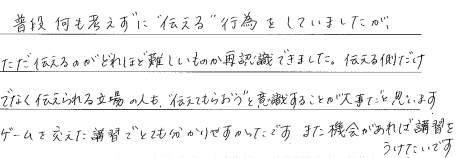 普段何も考えずに"伝える"行為をしていましたが、
ただ伝えるのがどれほど難しいものか再認識できました。伝える側だけ
でなく伝えられる立場の人も、"伝えてもらおう"と意識することが大事だと思います
ゲームを交えた講習でとても分かりやすかったです また機会があれば講習を
うけたいです